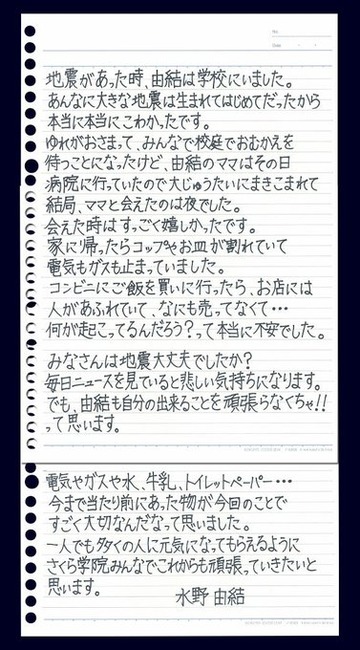 No.
Date
地震があった時、由結は学校にいました。
あんなに大きな地震は生まれてはじめてだったから
本当に本当にこわかったです。
ゆれがおさまって、みんなで校庭でおむかえを
待つことになったけど、由結のママはその日
病院に行っていたので大じゅうたいにまきこまれて
結局、ママと会えたのは夜でした。
会えた時はすっごく嬉しかったです。
家に帰ったらコップやお皿が割れていて
電気もガスも止まっていました。
コンビニにご飯を買いに行ったら、お店には
人があふれていて、なにも売ってなくて…
何が起こってるんだろう?って本当に不安でした。
みなさんは地震大丈夫でしたか?
毎日ニュースを見ていると悲しい気持ちになります。
でも、由結も自分の出来ることを頑張らなくちゃ!!
って思います。
電気やガスや水、牛乳、トイレットペーパー…
今まで当たり前にあった物が今回のことで
すごく大切なんだなって思いました。
一人でも多くの人に元気になってもらえるように
さくら学院みんなでこれからも頑張っていきたいと
思います。
水野 由結